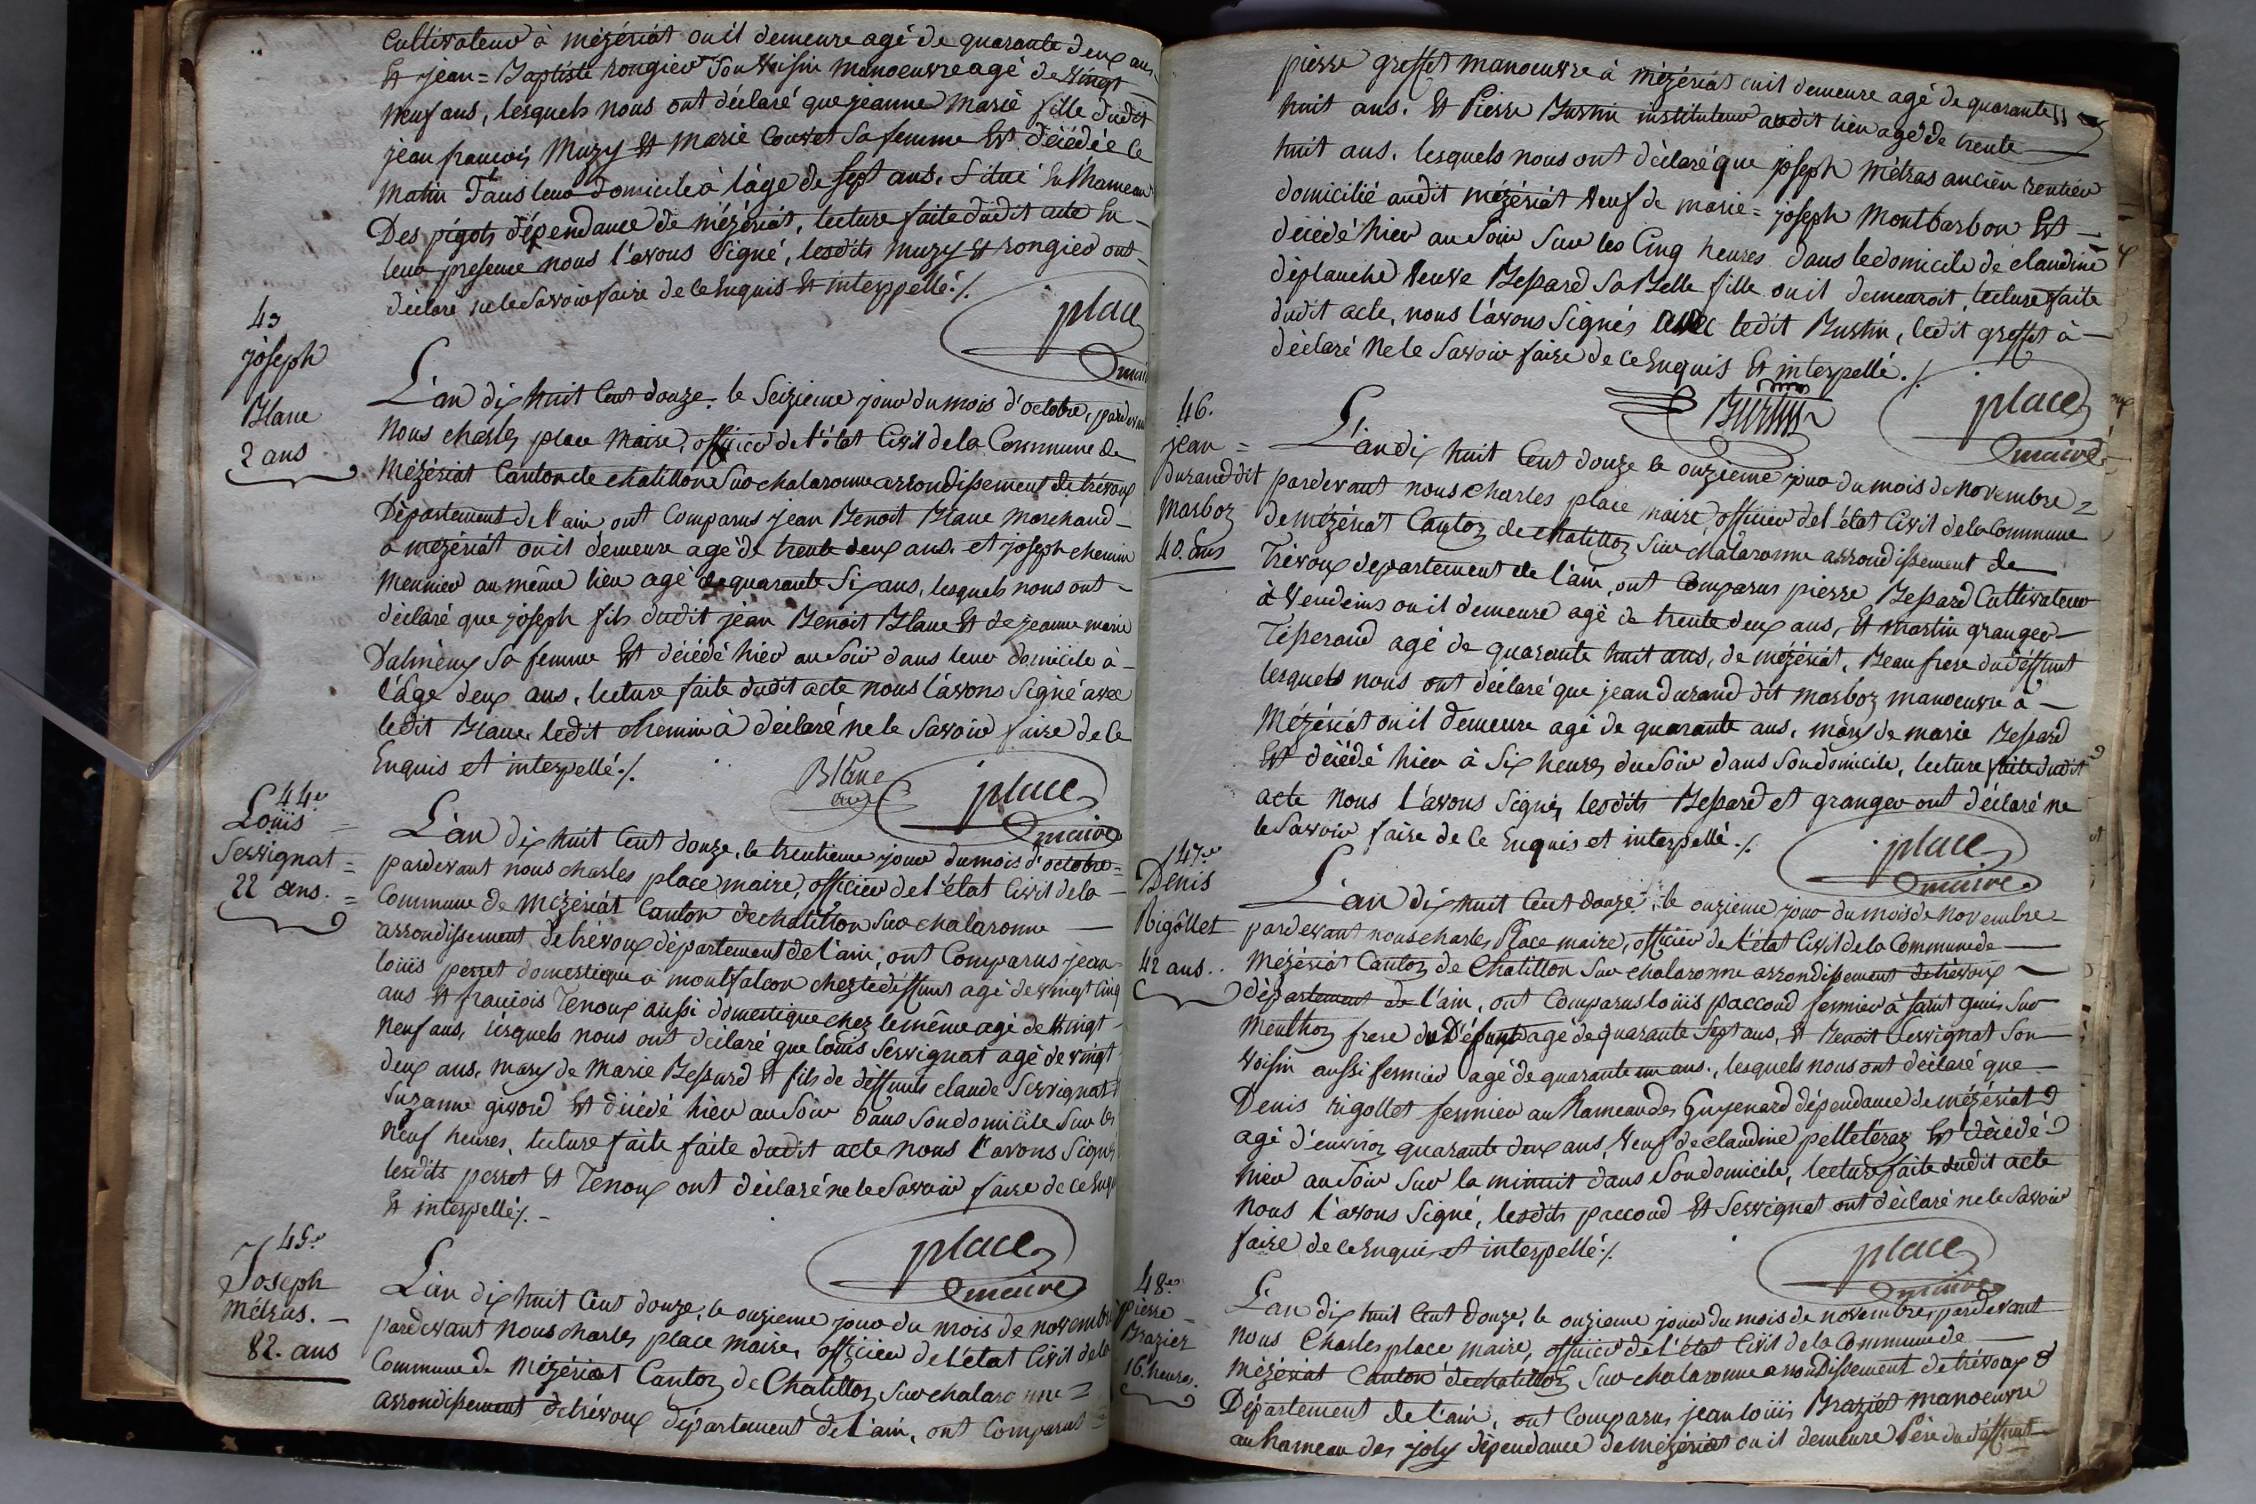 cultivateur à mézériat ou il demeure agé de quarante deux ans
Et jean = Baptiste rongier Son Voisin manoeuvre agé de vingt
neuf ans, lesquels nous ont déclaré que jeanne marie fille dudit
jean francois Muzy Et Marie Couvet Sa femme Est décédée ce
matin Dans leur domicile à lage de Sept ans. Situé En Lhameau
Des pigots dépendance de mézériat, lecture faite dudit acte En
leur presence nous l'avons Signé, lesdits muzy Et rongier ont
déclaré ne le Savoir faire de ce Enquis Et interppellé ./.
place
maire
43
joseph
Blanc
2 ans
L'an dix huit Cent douze. le Seizieme jour du mois d'octobre, pardevant
Nous charles place Maire, officier de l'état Civil de la Commune de
Mézériat Canton de chatillon Sur chalaronne arrondissement de trévoux
Département de l'ain ont Comparus jean Benoit Blanc Marchand
a mézériat ou il demeure agé de trente deux ans. et joseph chemin
Meunier au même lieu agé de quarante Six ans, lesquels nous ont
déclaré que joseph fils dudit jean Benoit Blanc Et de jeanne marie
Dalmeny Sa femme Est décédé hier au Soir dans leur domicile à
l'âge deux ans. lecture faite dudit acte nous l'avons Signé avec
ledit Blanc ledit chemin à déclaré ne le Savoir faire de ce
Enquis et interpellé ./.
Blanc
place
maire
44e
Louis =
Servignat =
22 ans. =
L'an dix huit Cent douze, le trentieme jour du mois d'octobre =
pardevant nous charles place maire, officier de l'état Civil de la
Commune de Mézériat Canton de chatillon Sur chalaronne
arrondissement de trévoux département de l'ain, ont Comparus jean
louis perret domestique a montfalcon chez le déffunt agé de vingt Cinq
ans Et francois Tenoux aussi domestique chez le même agé de Vingt
Neuf ans, lesquels nous ont déclaré que louis Servignat agé de vingt
deux ans, mary de Marie Bessard Et fils de déffunts claude Servignat Et
Suzanne givord Est décédé hier au Soir Dans Son domicile Sur les
Neuf heures, lecture faite faite dudit acte nous l'avons Signé,
lesdits perret Et Tenoux ont déclaré ne le Savoir faire de ce Enquis
Et interpellé ./. -
place
maire
45e
Joseph
Métras. -
82. ans
L'an dix huit Cent douze, le onzieme jour du mois de novembre
pardevant nous charles place Maire, officier de l'état Civil de la
Commune de Mézériat Canton de Chatillon Sur chalaronne =
arrondissement de trévoux département de l'ain, ont Comparus =
pierre greffet manoeuvre à mézériat ou il demeure agé de quarante
huit ans. Et Pierre Burtin instituteur audit lieu agé de trente
huit ans. lesquels nous ont déclaré que joseph Métras ancien rentier
domicilié audit mézériat Veuf de marie = joseph Montbarbon Est
décédé hier au Soir Sur les Cinq heures dans le domicile de claudine
déplanche Veuve Bessard Sa Belle fille ou il demeuroit, lecture faite
dudit acte, nous l'avons Signés avec ledit Burtin, ledit greffet à
déclaré Ne le Savoir faire de ce Enquis Et interpellé ./.
Burtin
place
maire
46.
jean =
durand dit
Marboz
40. ans
L'an dix huit Cent douze le onzieme jour du mois de Novembre =
pardevant nous charles place maire, officier de l'état Civil de la Commune
de Mézériat Canton de chatillon Sur chalaronne arrondissement de
Trévoux departement de l'ain, ont Comparus pierre Bessard Cultivateur
à Vendeins ou il demeure agé de trente deux ans, Et martin granger
Tisserand agé de quarante huit ans, de mézériat, Beau frere du déffunt
lesquels nous ont déclaré que jean durand dit marboz manoeuvre à
Mézériat ou il demeure agé de quarante ans, mary de marie Bessard
Est décédé hier à Six heures du Soir dans Son domicile, lecture faite dudit
acte Nous l'avons Signé, lesdits Bessard et granger ont déclaré ne
le Savoir faire de ce Enquis et interpellé ./.
place
maire
47e
Denis
Rigollet
42 ans.
L'an dix huit Cent douze, le onzieme jour du mois de Novembre
pardevant nous charles Place maire, officier de l'état Civil de la Commune de
Mézériat Canton de Chatillon Sur chalaronne arrondissement de trévoux
département de l'ain, ont Comparus louis paccoud fermier à Saint Genis Sur
Menthon frere du Défunt agé de quarante Sept ans, Et Benoit Servignat Son
Voisin aussi fermier agé de quarante un ans., lesquels nous ont déclaré que
Denis rigollet fermier au Hameau des Guyenard dépendance de mézériat
agé d'environ quarante deux ans, Veuf de claudine pelleteraz Est décédé
hier au Soir Sur la minuit dans Son domicile, lecture faite dudit acte
Nous l'avons Signé, lesdits paccoud Et Servignat ont déclaré ne le Savoir
faire de ce Enquis et interpellé ./.
place
maire
48e
pierre
Brazier
16. heures.
L'an dix huit Cent Douze, le onzieme jour du mois de novembre, pardevant
nous Charles place maire, officier de l'état Civil de la Commune de
Mézériat Canton de chatillon Sur chalaronne arrondissement de trévoux
Département de l'ain, ont Comparus jean louis Braziet manoeuvre
au hameau des joly dépendance de mézériat ou il demeure Père du déffunt